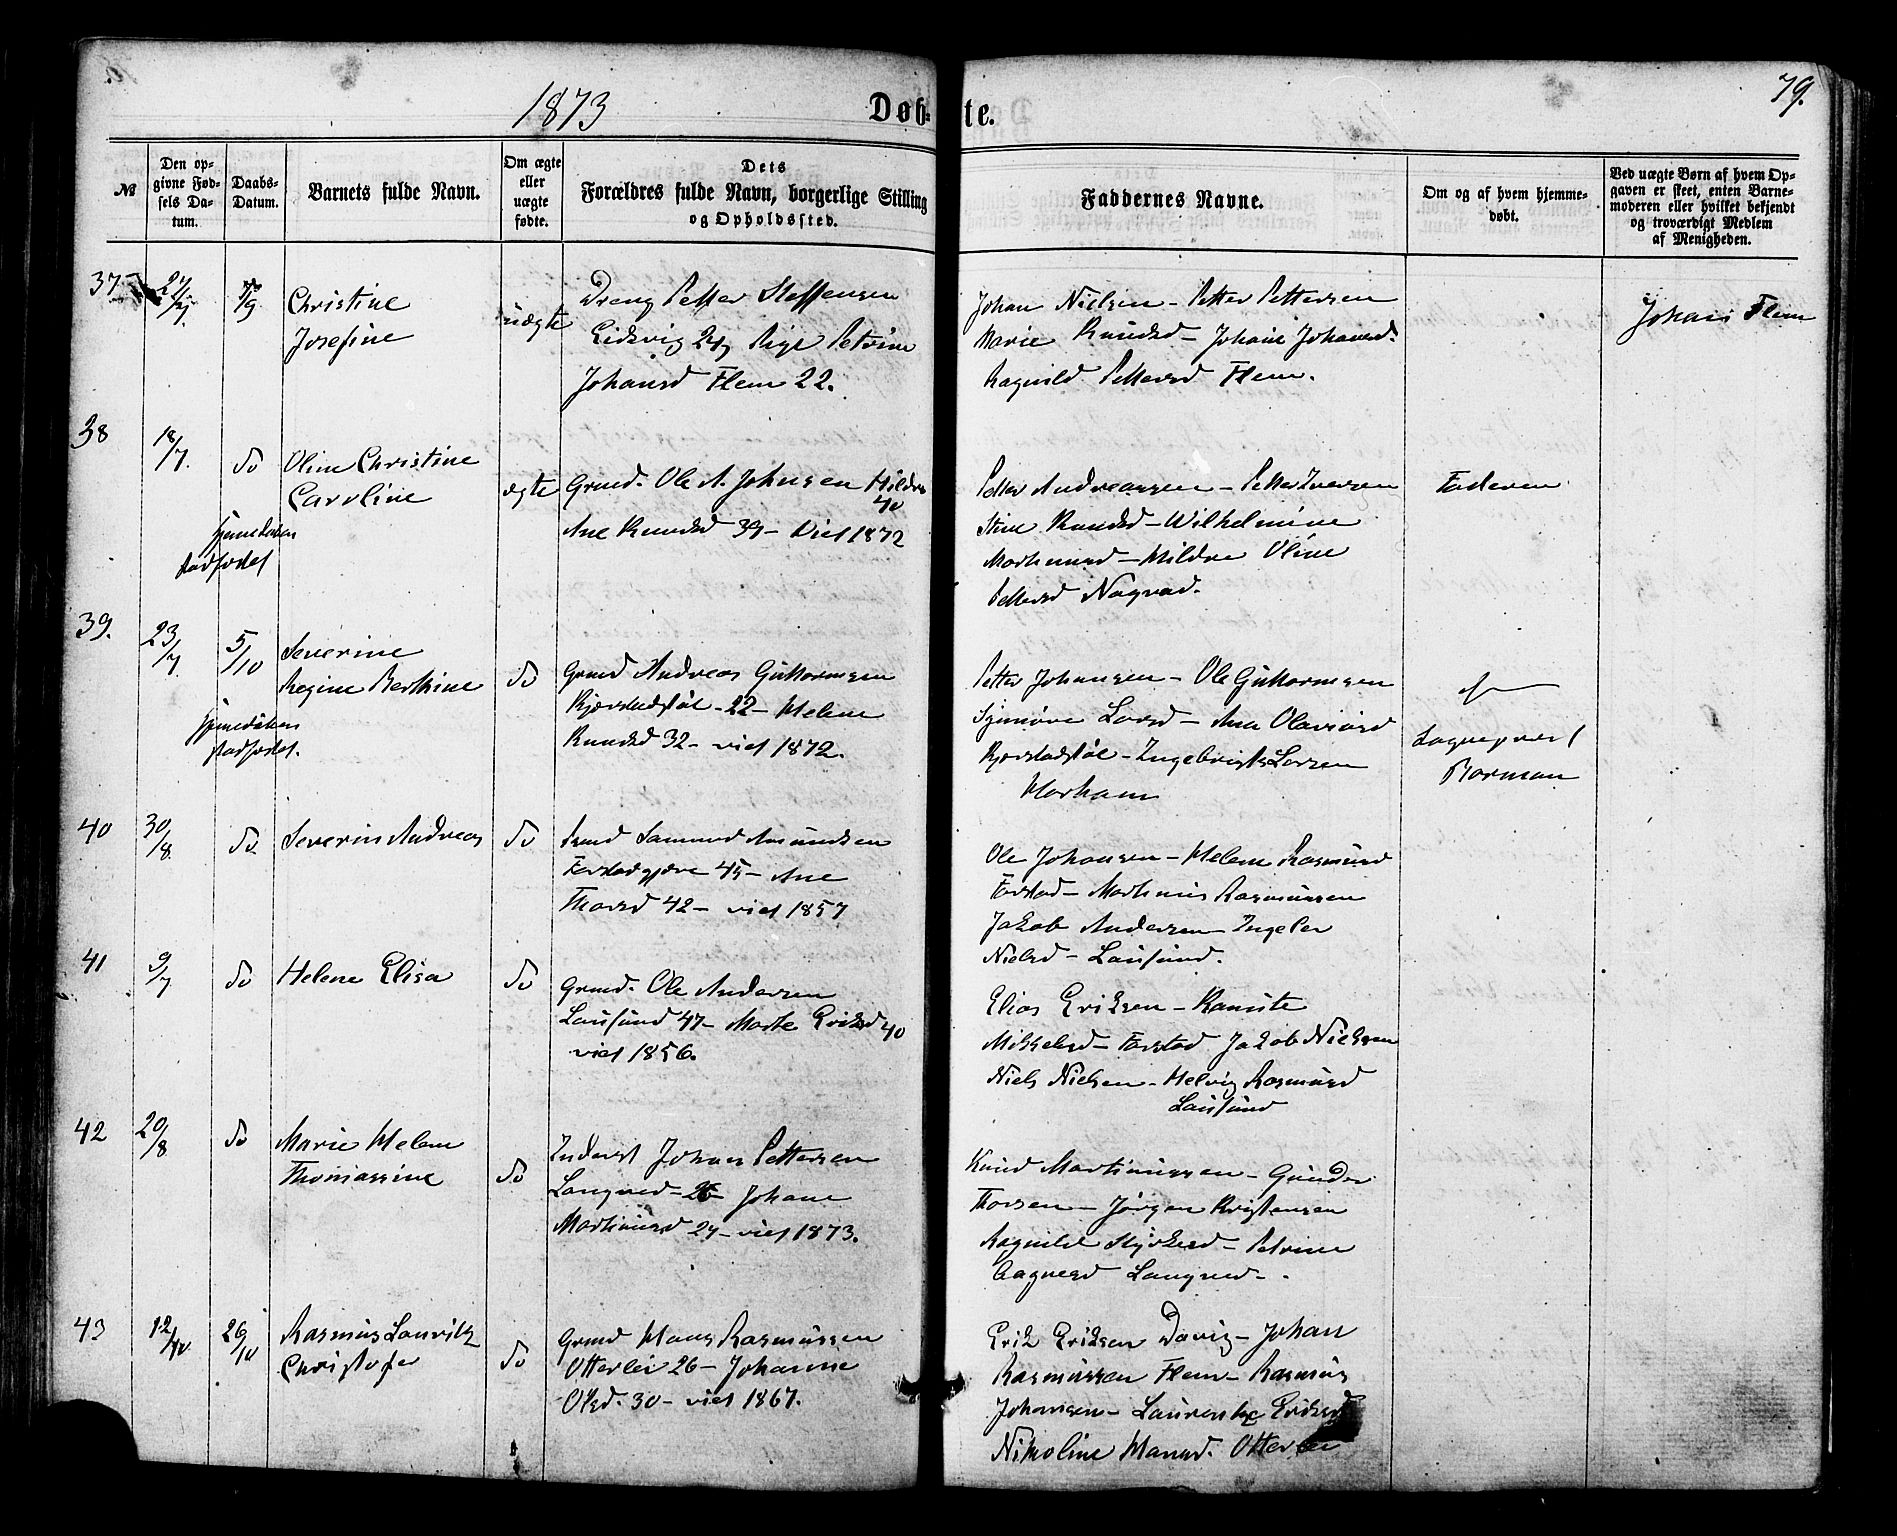 1873
Døb-
te.
79.
№
Den op-
givne Fød-
sels Da-
tum.
Daabs-
Datum.
Barnets fulde Navn.
Om ægte
eller
uægte
fødte.
Dets
Forældres fulde Navn, borgerlige Stilling
og Opholdssted.
Faddernes Navne.
Om og af hvem hjemme-
døbt.
Ved uægte Børn af hvem Op-
gaven er skeet, enten Barne-
moderen eller hvilket bekjendt
og troværdigt Medlem
af Menigheden.
37
Christine
Josefine
uægte
Dreng Petter Steffensen
Eidsvig 24, Pige Petrine
Johansd Flem 22.
Johan Nielsen - Petter Pettersen
Marie Knudsd - Johane Johansd.
Ragnild Pettersd Flem.
Johan Flem
38
18/7.
do
Oline Christine
Caroline
hjemedøben
stadfæstet
ægte
Grmd. Ole A. Johnsen Hildre
40
Ane Knudsd 39 - viet 1872
Petter Andreassen - Petter Iversen
Stine Knudsd - Wilhelmine
Marthinusd - Hildre Oline
Pettersd Nogvad.
Faderen
39.
23/7.
5/10
Severine
Regine Berthine
hjemedøben
stadfæstet.
do
Grmd Andreas Guttormsen
Kjærstadstøl - 22 - Helene
Knudsd 32 - viet 1872.
Petter Johansen - Ole Guttormsen
Synnøve Larsd - Ana Olavsd
Kjærstadstøl - Ingebrigt Larsen
Harham
Sognepræst
Borman
40
30/8.
do.
Severin Andreas
do
Grmd Samund Amundsen
Farstadgjære 45 - Ane
Thorsd 42 - viet 1857
Ole Johansen - Helene Rasmusd
Farstad - Marthinus Rasmussen
Jakob Andersen - Ingeler
Nielsd - Lausund.
41
9/7
do
Helene Elisa
do
Grmd. Ole Andersen
Lausund 47 - Marte Eriksd 40
viet 1856.
Elias Eriksen - Kanute
Mikkelsd - Farstad Jakob Nielsen
Niels Nielsen - Helvig Rasmusd
Lausund
42
20/8.
do
Marie Helene
Thomassine
do
Inderst Johan Pettersen
Longved - 26 - Johane
Martinusd 24 - viet 1873.
Knud Martinussen - Gunder
Thorsen - Jørgen Kristensen
Ragnild Styrkesd - Petrine
Aagesd Longved -
43
12/10.
26/10
Rasmus Lauritz
Christofer
do
Grmd Hans Rasmussen
Otterlei 26 - Johanne
Olsd. 30 - viet 1867.
Erik Eriksen Davig - Johan
Rasmussen Flem - Rasmus
Johansen - Laurentze Eriksd
Nikoline Hansd. Otterlei